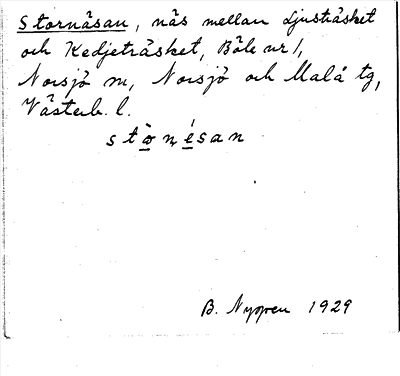 Stornäsan, näs mellan Ljusträsket
och Kedjeträsket, Böle nr 1,
Norsjö sn, Norsjö och Malå tg,
Västerb. l.
stònésan
B. Nygren 1929